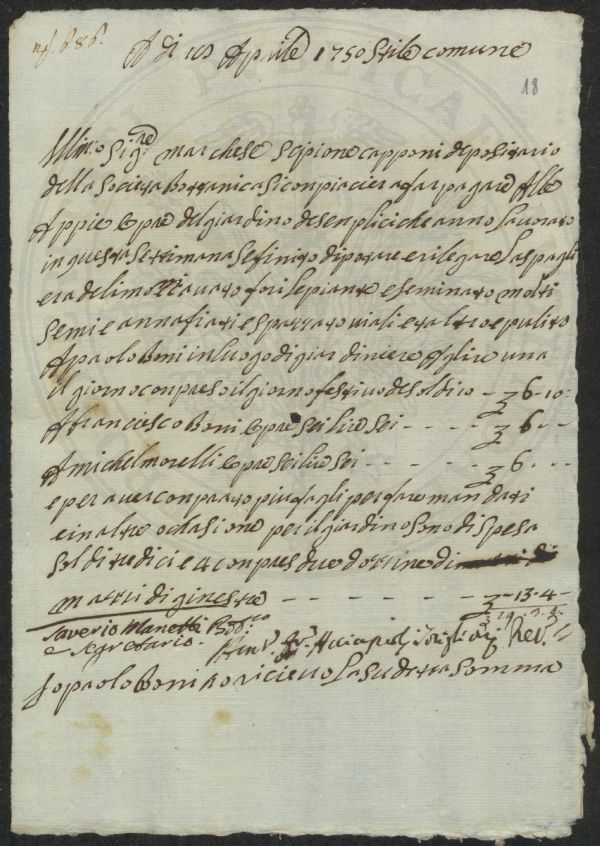 nº. 686.
A di 10 Aprile 1750 Stile comune
18
Illmo. Sigre. marchese Scpione capponi depositario
della Societa Bottanica si conpiaciera far pagare Alle
Appie opre del giardino de senplici che anno lavorato
in questa settimana Se finito di potare e rilegare La spagli
era de limoni auato fori le piante e seminato molti
Semi e annafiati e spazzato viali et altro e pulito
A paolo Boni in luogo di giardiniere A lire una
il giorno conpreso il giorno festivo de soldi 10 - 6 - 10 -
A francesco Boni opre sei lire sei - - - - 6 - -
A michel morelli opre sei lire sei - - - - 6 - -
e per aver conprato piu fogli per fare mandati
e in altre ochasione per il giardino sono di spesa
soldi tredici e 4 conpres due dozzine di
mazzi di ginestre - - - - - - 13 - 4 -
Saverio Manetti Bibrio 19 - 3 - 4
e Segretario. Acciajoli Rev.
Io paolo Boni o riceuto La sudetta Somma